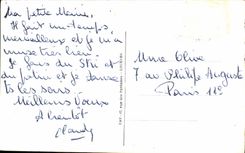 Ma petite Mémé,
Il fait un temps
merveilleux et je m'a
muse très bien.
Je fais du Ski et
du patin et je danse
ts les soirs.
Meilleurs Vœux
A bientôt
Claudy
Mme Olive
7 av Philippe Auguste
Paris 11e